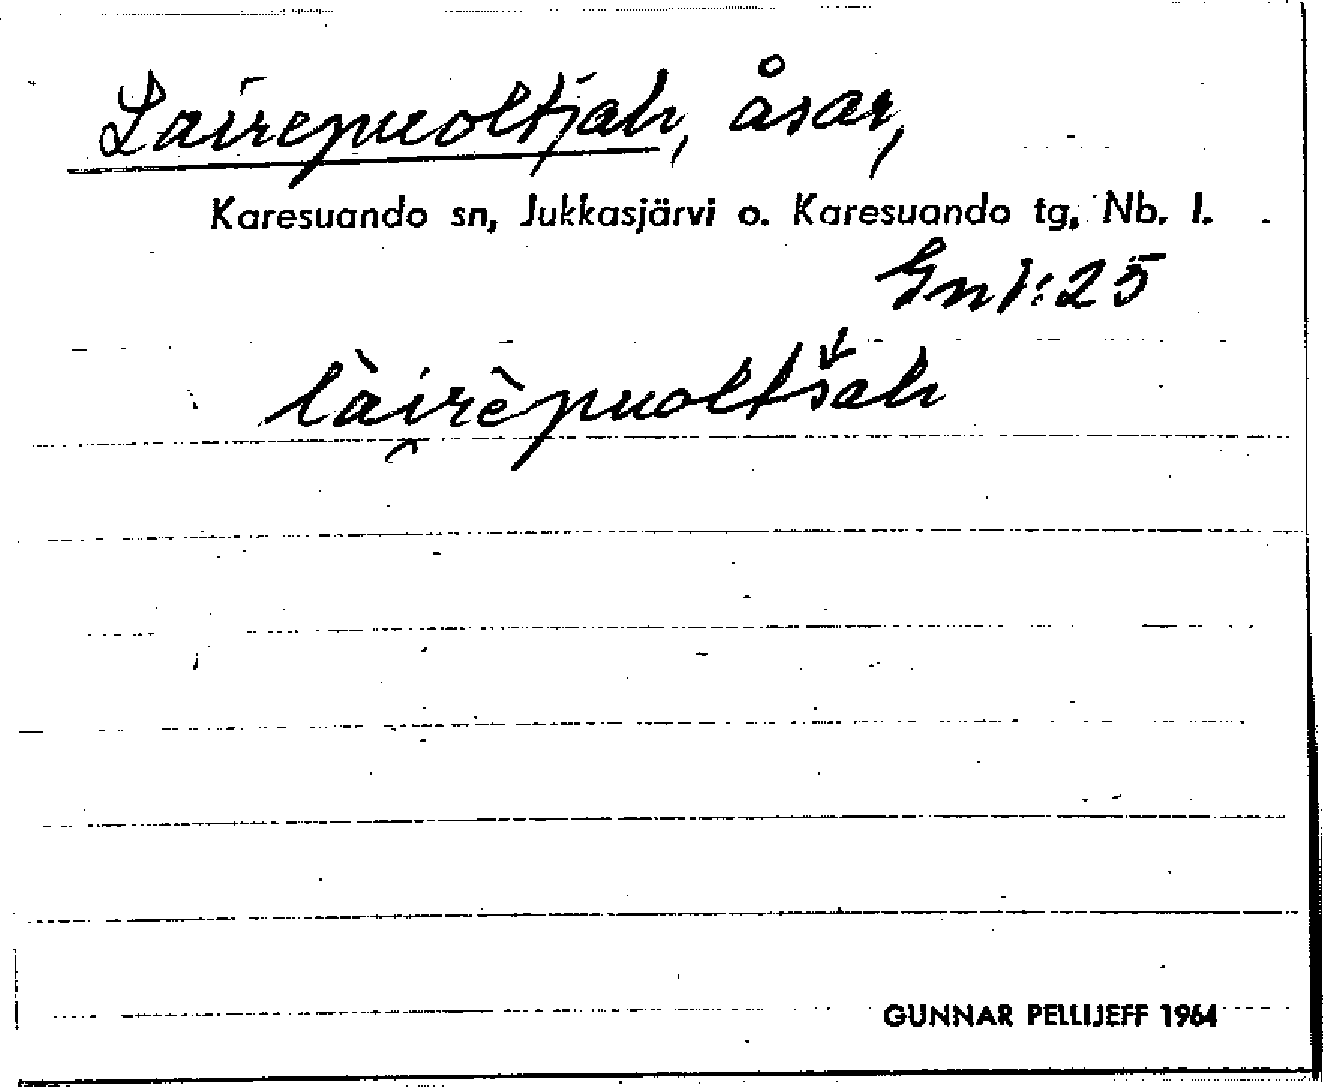 Lairepuoltjah, åsar,
Karesuando sn, Jukkasjärvi o. Karesuando tg, Nb. l.
Gn 1:25
lài̯rèpuoltšah
GUNNAR PELLIJEFF 1964